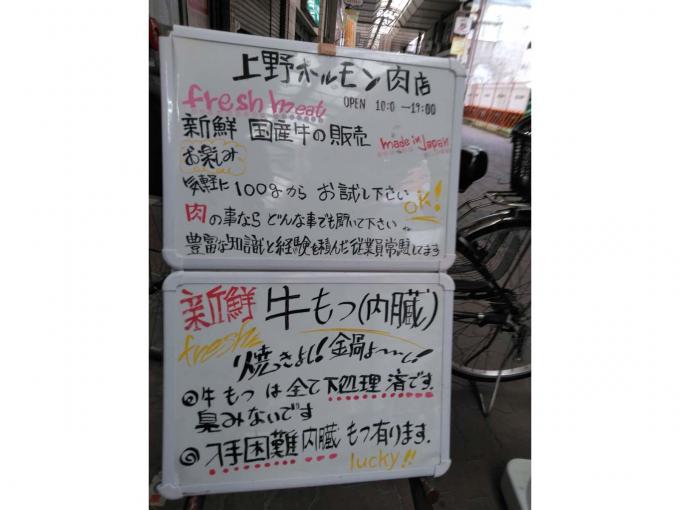 上野ホルモン肉店
fresh meat OPEN 10:0－19:00
新鮮 国産牛の販売 made in Japan
お楽しみ
気軽に100gから お試し下さい OK!
肉の事なら どんな事でも聞いて下さい。
豊富な知識と経験を積んだ従業員常駐してます
新鮮 牛もつ(内臓)
fresh
焼きよし!鍋よーし!
◎牛もつは全て下処理済です。
臭みないです
◎入手困難内臓もつ有ります。
lucky!!